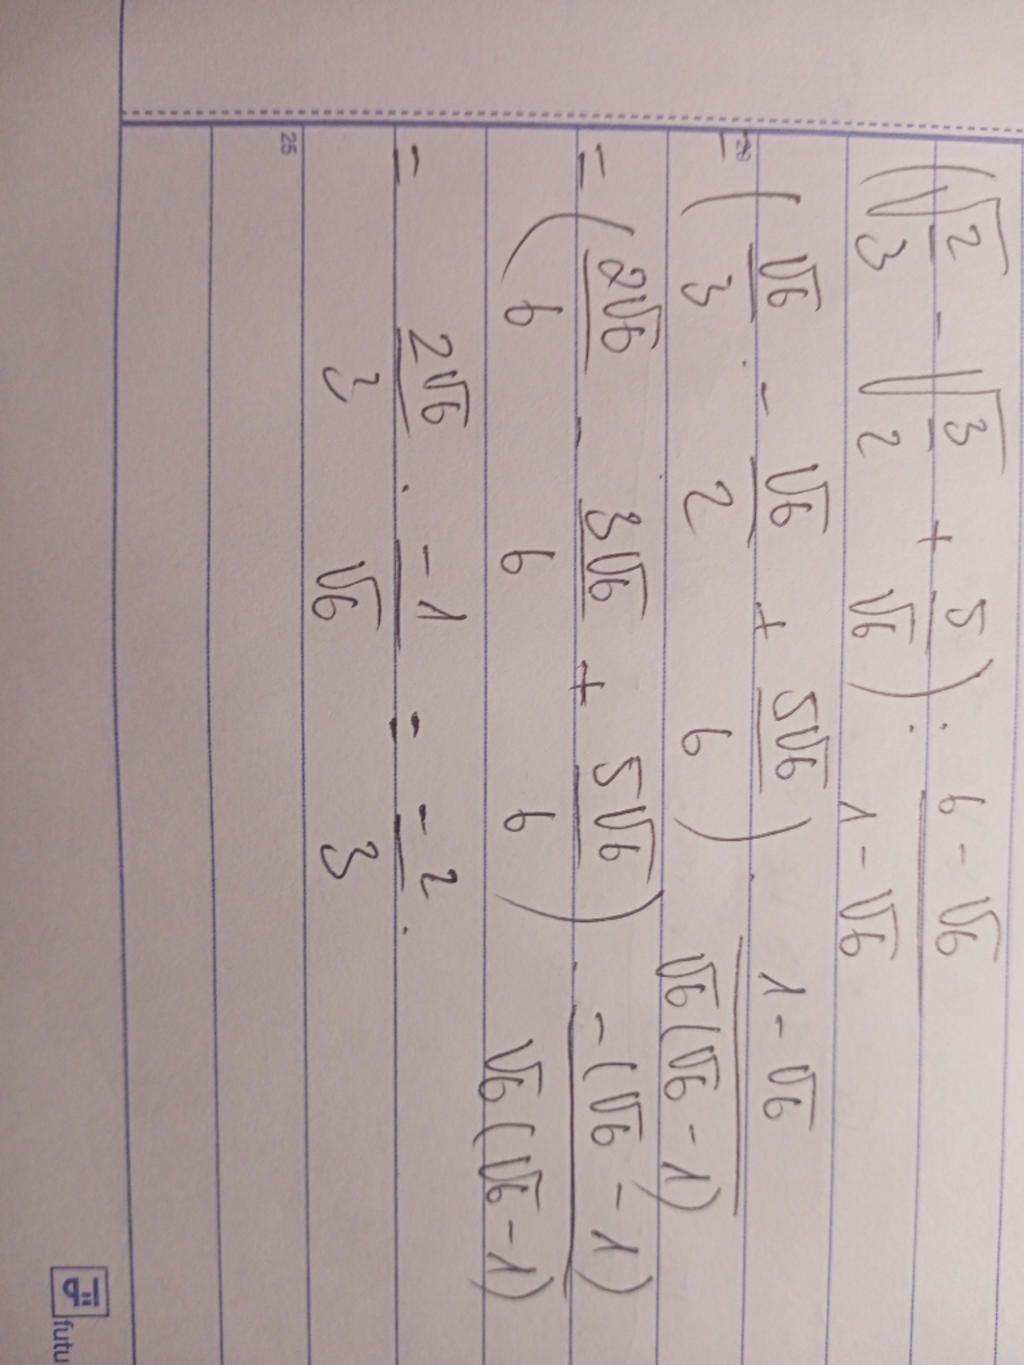 (√(2/3) - √(3/2) + 5/√6) : (6 - √6)/(1 - √6)
= (√6/3 - √6/2 + 5√6/6) . (1 - √6)/(√6(√6 - 1))
= (2√6/6 - 3√6/6 + 5√6/6) . (-(√6 - 1))/(√6(√6 - 1))
= 2√6/3 . -1/√6 = -2/3.
20
25
futu